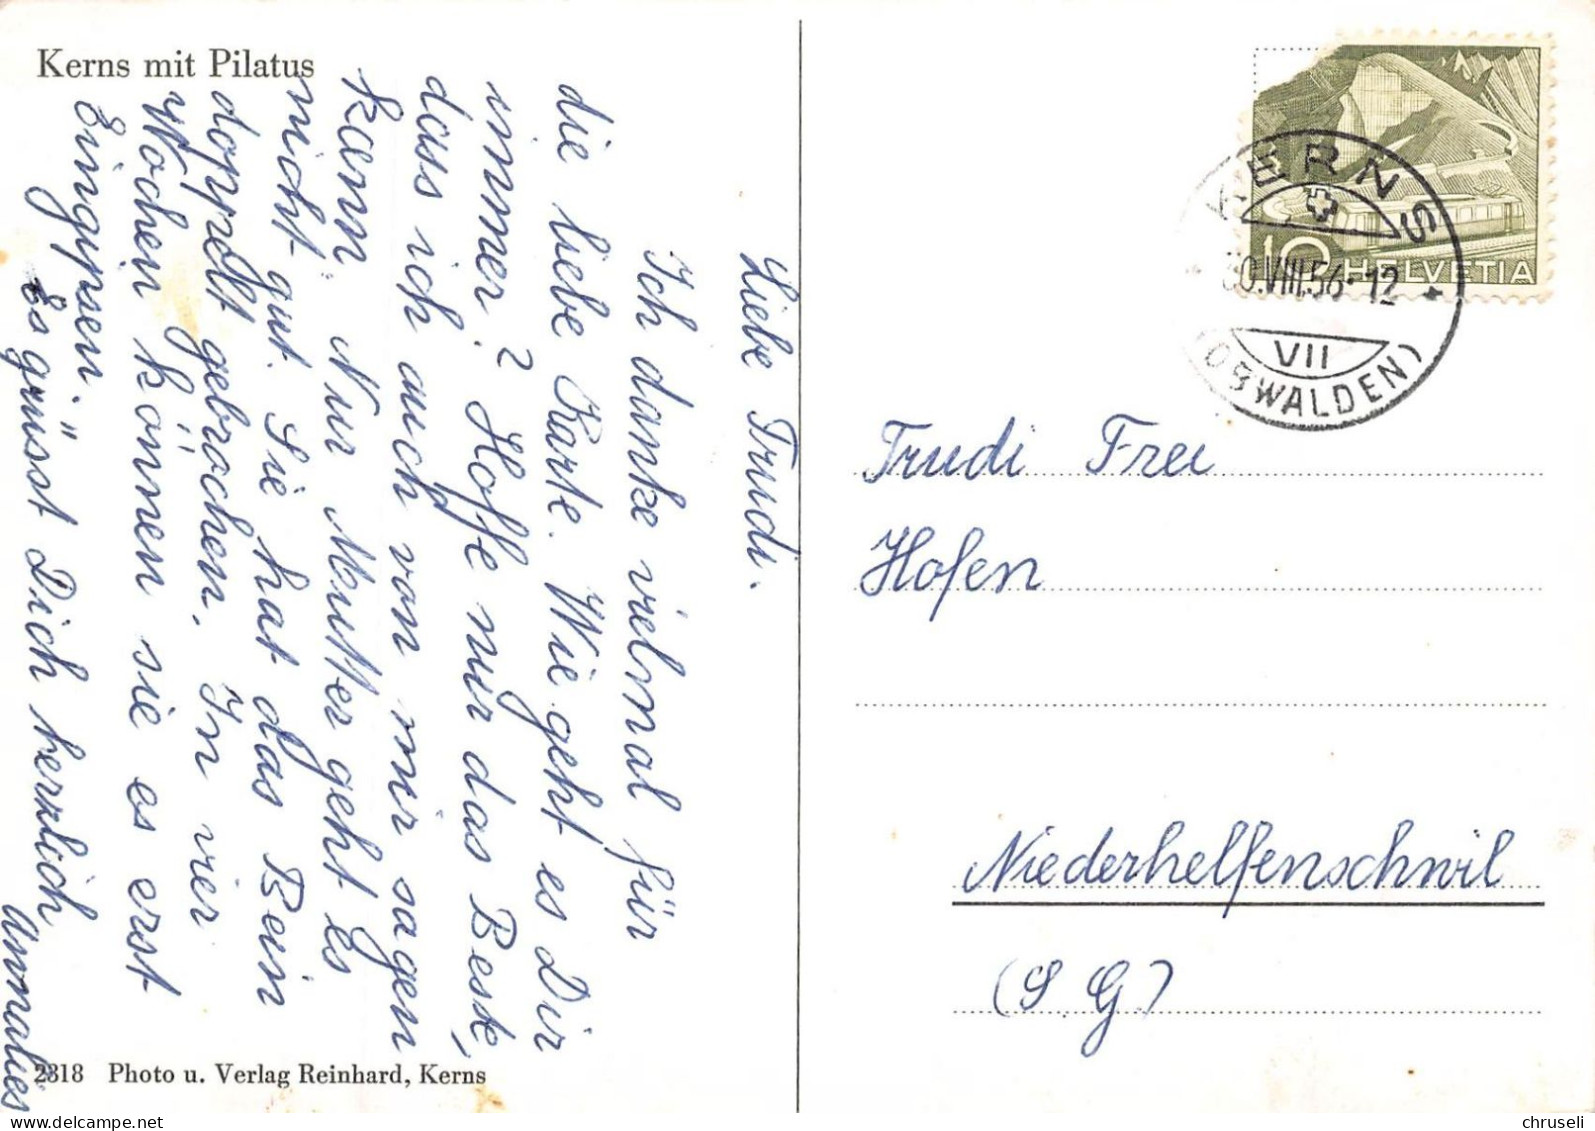 Kerns mit Pilatus
Liebe Trudi.
Ich danke vielmal für
die liebe Karte. Wie geht es Dir
immer? Hoffe nur das Beste,
dass ich auch von mir sagen
kann. Nur Mutter geht es
nicht gut. Sie hat das Bein
doppelt gebrochen. In vier
Wochen können sie es erst
Eingypsen."
Es grüsst Dich herzlich
Annalies
2318 Photo u. Verlag Reinhard, Kerns
10 HELVETIA
KERNS
30.VIII.56-12
VII
(OBWALDEN)
Trudi Frei
Hofen
Niederhelfenschwil
(S G)
© chruseli